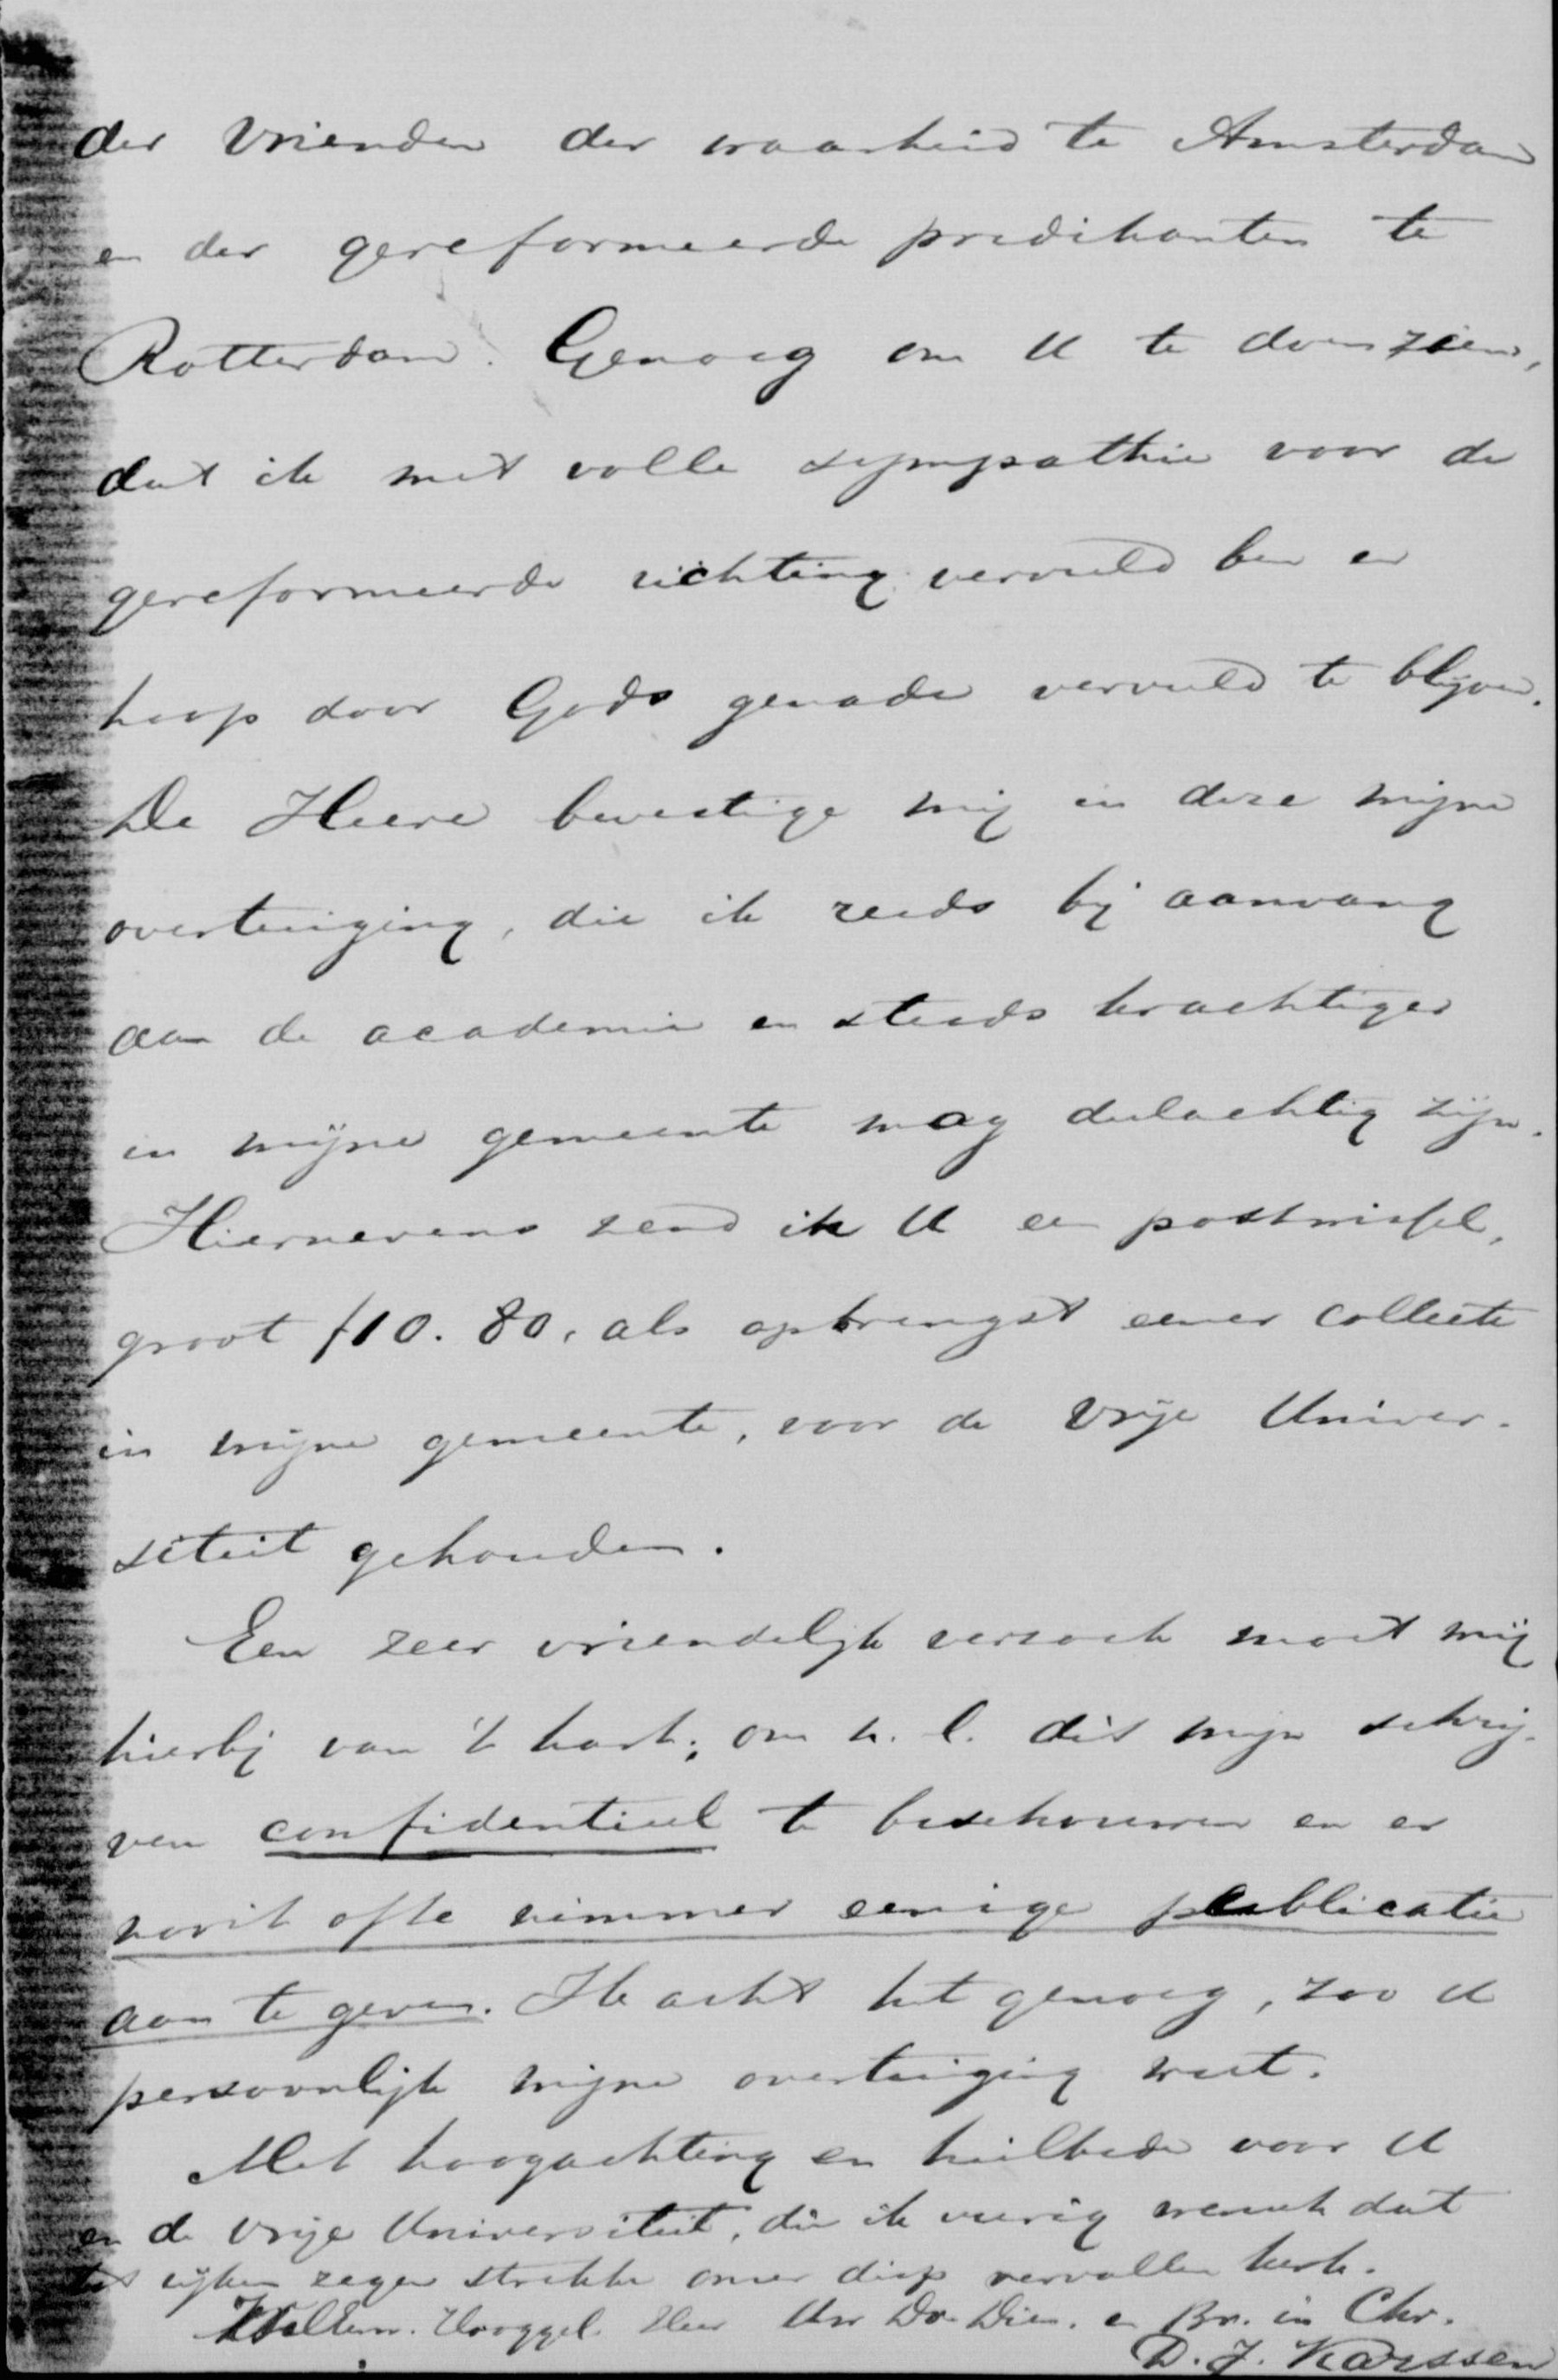 der Vrienden der waarheid te Amsterdam
en der gereformeerde predikanten te
Rotterdam. Genoeg om U te doen zien,
dat ik met volle sympathie voor de
gereformeerde richting vervuld ben en
hoop door Gods genade vervuld te blijven.
De Heere bevestige mij in deze mijne
overtuiging, die ik reeds bij aanvang
aan de academie en steeds krachtiger
in mijne gemeente mag deelachtig zijn.
Hiernevens zend ik U een postwissel,
groot f10.80, als opbrengst eener collecte
in mijne gemeente, voor de Vrije Univer-
siteit gehouden.
Een zeer vriendelijk verzoek moet mij
hierbij van 't hart; om n. l. dit mijn schrij-
ven confidentieel te beschouwen en er
nooit ofte nimmer eenige publicatie
aan te geven. Ik acht het genoeg, zoo U
persoonlijk mijne overtuiging weet.
Met hoogachting en heilbede voor U
en de Vrije Universiteit, die ik vurig wensch dat
tot rijken zegen strekke onzer diep vervallen kerk.
Hooggel. Heer Uw Dv. Dien. en Br. in Chr.
D. J. Karssen